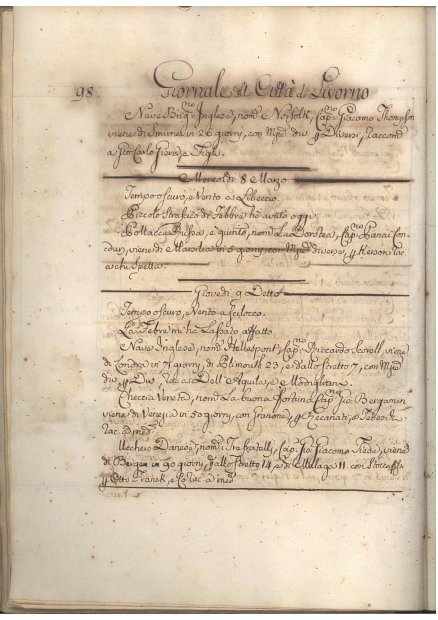 98. Giornale della Città di Livorno
Nave Brig.no Inglese, nom.o Norfolk, Cap.no Giacomo Thompson
viene di Smirne in 26 giorni, con Mpri div. p Diversi, raccom.
a Gio: Carlo Giera, e Figli.
Mercoledì 8 Marzo
Tempo oscuro, e Vento a Libeccio.
Piccolo strascico di Febbre hò avuto oggi.
Pollacca e giunto, nom. La Cap.no
viene di Marsilia in 5 giorni, con Mpri diverse, p
a chi spetta.
Giovedì 9 Detto
Tempo oscuro, e Vento a Scilocco.
La Febre mi hà lasciato affatto.
Nave Inglese, nom. Hellespont, Cap.no Riccardo Scovell, viene
di Londra in 71 giorni, di Plimouth 23, e dallo stretto 7, con Mpri
div. p Div. rac. a Dell'Aquila, e Modigliani.
Checcia Veneta, nom. La buona Fortuna, Cap.no Gio: Bergamin
viene di Venezia in 50 giorni, con Granone, p Recanati, e
rac. a med.
Uchero Danese, nom. Tre fratelli, Cap.no Giacomo viene
di Bergen in 90 giorni, dallo stretto 14, e di Mallaga 11. con Stoccafiss
p Otto Franck, e Co: rac. a med.